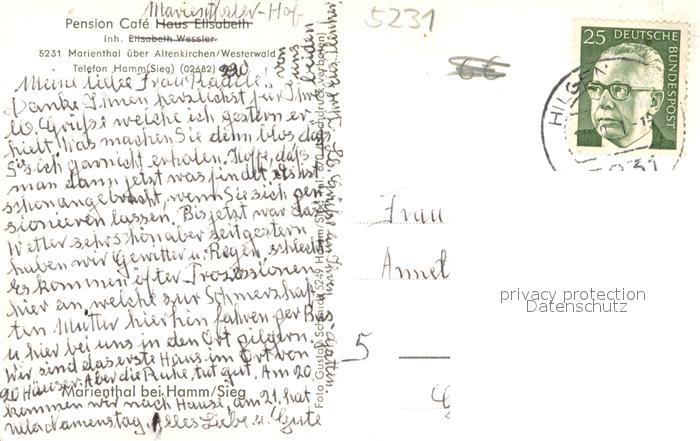 Marienthaler-Hof
Pension Café Haus Elisabeth
Inh. Elisabeth Wessler
5231 Marienthal über Altenkirchen/Westerwald
Telefon Hamm(Sieg) (02682) 330
Meine liebe Frau
Danke Ihnen herzlichst für Ihre
lb. Grüße welche ich gestern er-
hielt. Was machen Sie denn blos das
Sie sich garnicht erholen. Hoffe, daß
man dann jetzt was findet es ist
schon angebracht, wenn Sie sich pen
sionieren lassen. Bis jetzt war das
Wetter sehr schön aber seit gestern
haben wir Gewitter u. Regen, schlecht
es kommen öfter Prozessionen
hier an, welche zur Schmerzhaf-
ten Mutter hierhin fahren per Bus
u hier bei uns in den Ort pilgern.
Wir sind das erste Haus im Ort von
20 Häuser. Aber die Ruhe tut gut. Am 20
Marienthal bei Hamm/Sieg
kommen wir nach Hause, am 21. hat
Namenstag. Alles Liebe u. Gute
von
uns
beiden
Foto Gustav 5249 Hamm/Sieg
5231
66
25 DEUTSCHE BUNDESPOST
HILGE
5231
Frau
Annel
5
privacy protection
Datenschutz